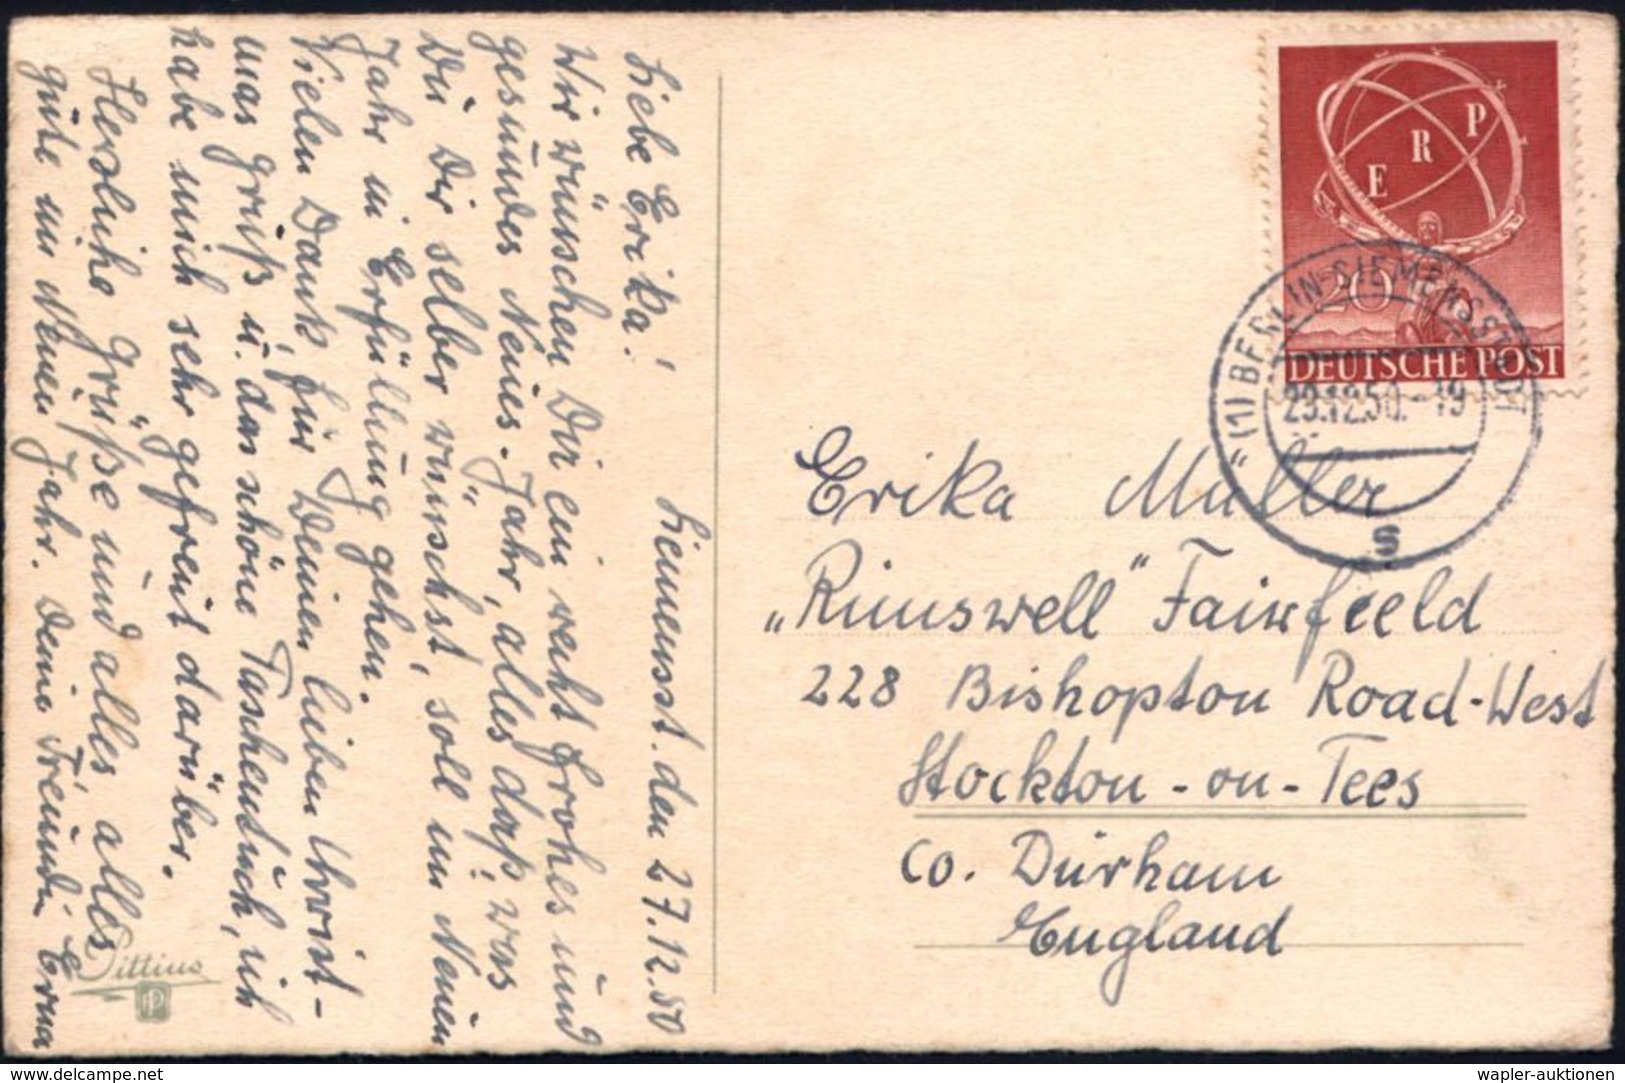 Liebe Erika!
Siemensst. den 27.12.50
Wir wünschen Dir ein recht frohes und
gesundes Neues-Jahr, alles daß, was
Du Dir selber wünschst, soll im Neuen
Jahr in Erfüllung gehen.
Vielen Dank, für Deinen lieben Christ-
mas gruß u. das schöne Taschentuch, ich
habe mich sehr gefreut darüber.
Herzliche Grüße und alles, alles
gute im Neuen Jahr. Deine Freundin Erna
Pittius
PP
ERP
20
DEUTSCHE POST
(1) BERLIN-SIEMENSSTADT
29.12.50.-19
s
Erika Müller
„Rimswell" Fairfield
228 Bishopton Road-West
Stockton-on-Tees
Co. Durham
England
www.delcampe.net
wapler-auktionen